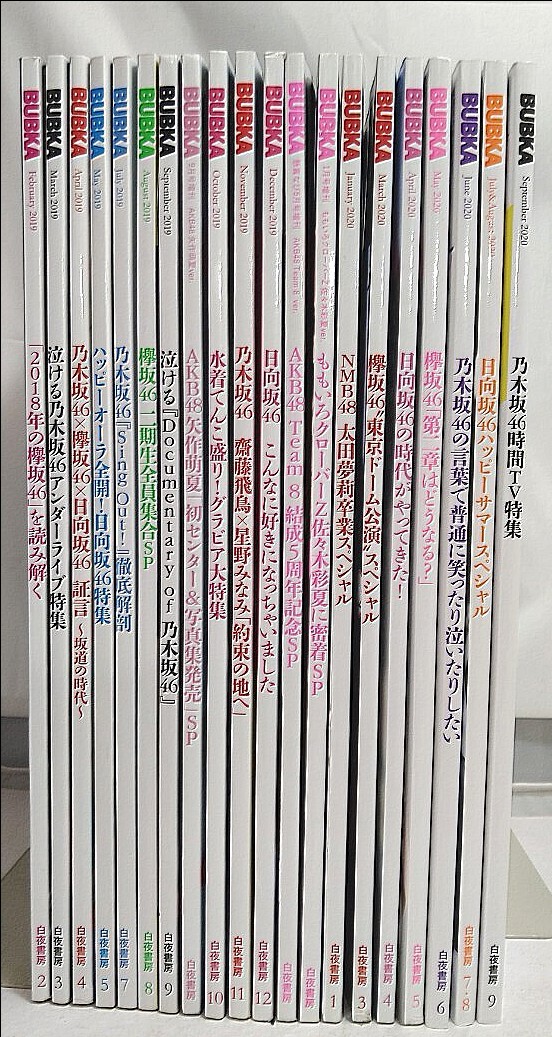 BUBKA February 2019 「2018年の欅坂46」を読み解く 白夜書房 2
BUBKA March 2019 泣ける乃木坂46アンダーライブ特集 白夜書房 3
BUBKA April 2019 乃木坂46×欅坂46×日向坂46 証言 〜坂道の時代〜 白夜書房 4
BUBKA May 2019 ハッピーオーラ全開!日向坂46特集 白夜書房 5
BUBKA July 2019 乃木坂46『Sing Out!』徹底解剖 白夜書房 7
BUBKA August 2019 欅坂46 二期生全員集合SP 白夜書房 8
BUBKA September 2019 泣ける『Documentary of 乃木坂46』 白夜書房 9
BUBKA AKB48 矢作萌夏 初センター&写真集発売 SP 白夜書房
BUBKA October 2019 水着てんこ盛り!グラビア大特集 白夜書房 10
BUBKA November 2019 乃木坂46 齋藤飛鳥×星野みなみ「約束の地へ」 白夜書房 11
BUBKA December 2019 日向坂46 こんなに好きになっちゃいました 白夜書房 12
BUBKA AKB48 Team 8 ver. AKB48 Team 8 結成5周年記念SP 白夜書房
BUBKA ももいろクローバーZ 佐々木彩夏に密着SP 白夜書房
BUBKA January 2020 NMB48 太田夢莉卒業スペシャル 白夜書房 1
BUBKA March 2020 欅坂46“東京ドーム公演”スペシャル 白夜書房 3
BUBKA April 2020 日向坂46の時代がやってきた! 白夜書房 4
BUBKA May 2020 欅坂46「第二章はどうなる?」 白夜書房 5
BUBKA June 2020 乃木坂46の言葉で普通に笑ったり泣いたりしたい 白夜書房 6
BUBKA July&August 2020 日向坂46ハッピーサマースペシャル 白夜書房 7・8
BUBKA September 2020 乃木坂46時間TV特集 白夜書房 9